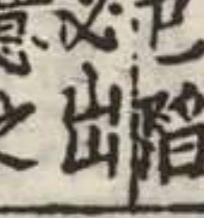 陷
必出
意之